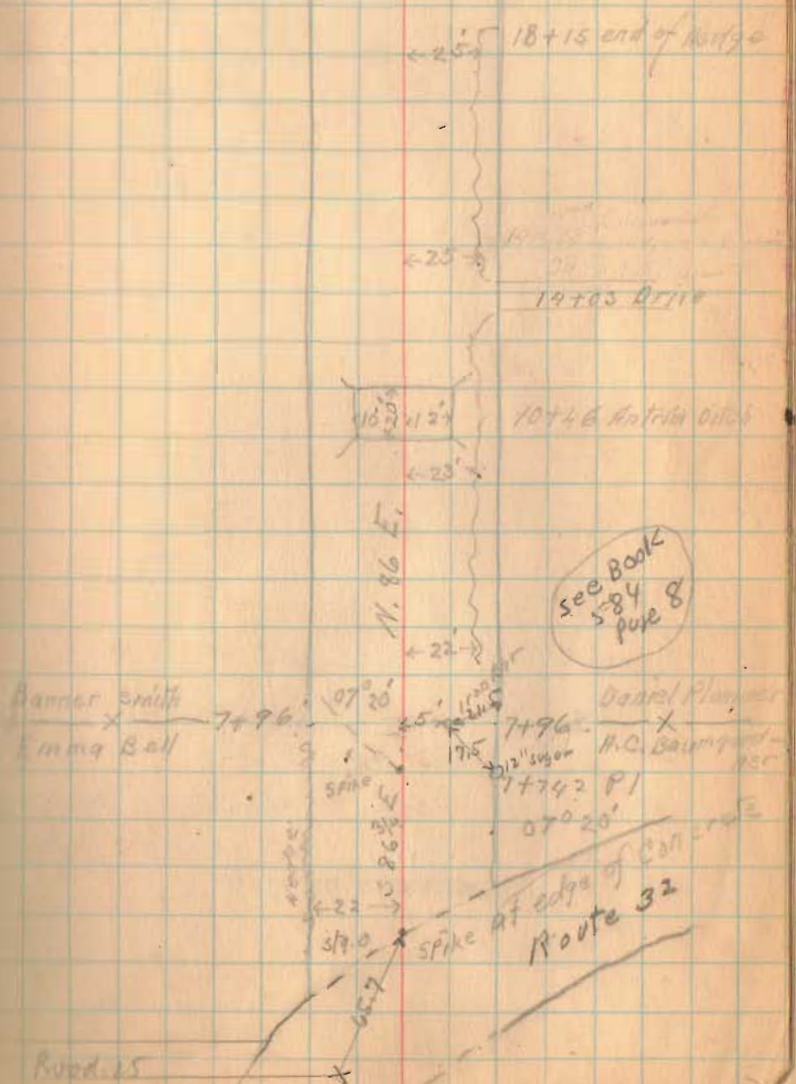 ←25'→ 18+15 end of Hedge
←25→
14+03 Drive
10' 20' 12' 10+46 Antrim Ditch
←23'
N. 86 E.
see Book
584
page 8
←22'→
Banner Smith 7+96 07° 20' ←5' 7+96 Daniel Plummer
Emma Bell H.C. Baumgardner
17.5 12" sugar
spike 7+742 PI
07° 20'
S 86¾ E
←22→ spike at edge of Concrete
Sta. 0 Route 32
65.7
Road 25